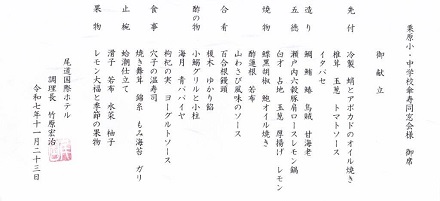 栗原小・中学校傘寿同窓会様 御席
御献立
先付 冷製 蛸とアボカドのオイル焼き
椎茸 玉葱 トマトソース
イタパセ
造り 鯛 鮪 鰆 烏賊 甘海老
五徳 瀬戸内六穀豚肩ロースレモン鍋
白才 占地 玉葱 厚揚げ レモン
焼物 鰈黒胡椒 鮑オイル焼き
酢蓮根 若布
山わさび風味のソース
合肴 百合根饅頭
榎木 ゆかり餡
酢の物 小鰯グリルと小柱
海月 パパイヤ
枸杞の実 ヨーグルトソース
食事 穴子の温寿司
焼き舞茸 錦糸 もみ海苔 ガリ
止椀 蛤潮仕立て
滑子 若布 水菜 柚子
果物 レモン大福と季節の果物
尾道国際ホテル
調理長 竹原宏治
令和七年十一月二十三日